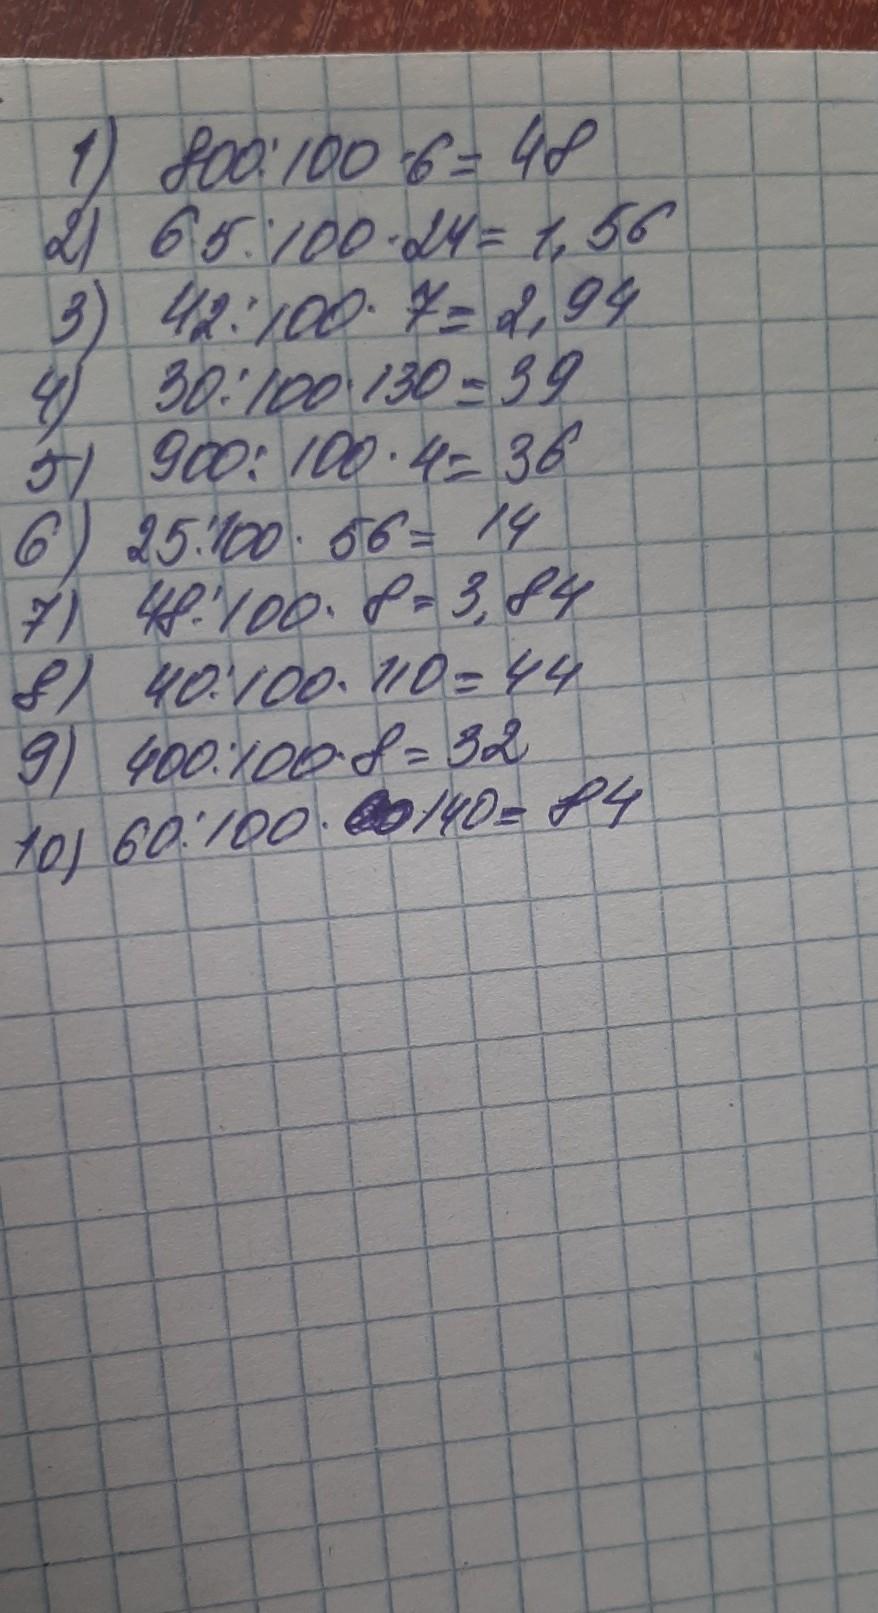 1) 800:100·6=48
2) 65:100·24=1,56
3) 42:100·7=2,94
4) 30:100·130=39
5) 900:100·4=36
6) 25:100·56=14
7) 48:100·8=3,84
8) 40:100·110=44
9) 400:100·8=32
10) 60:100·140=84